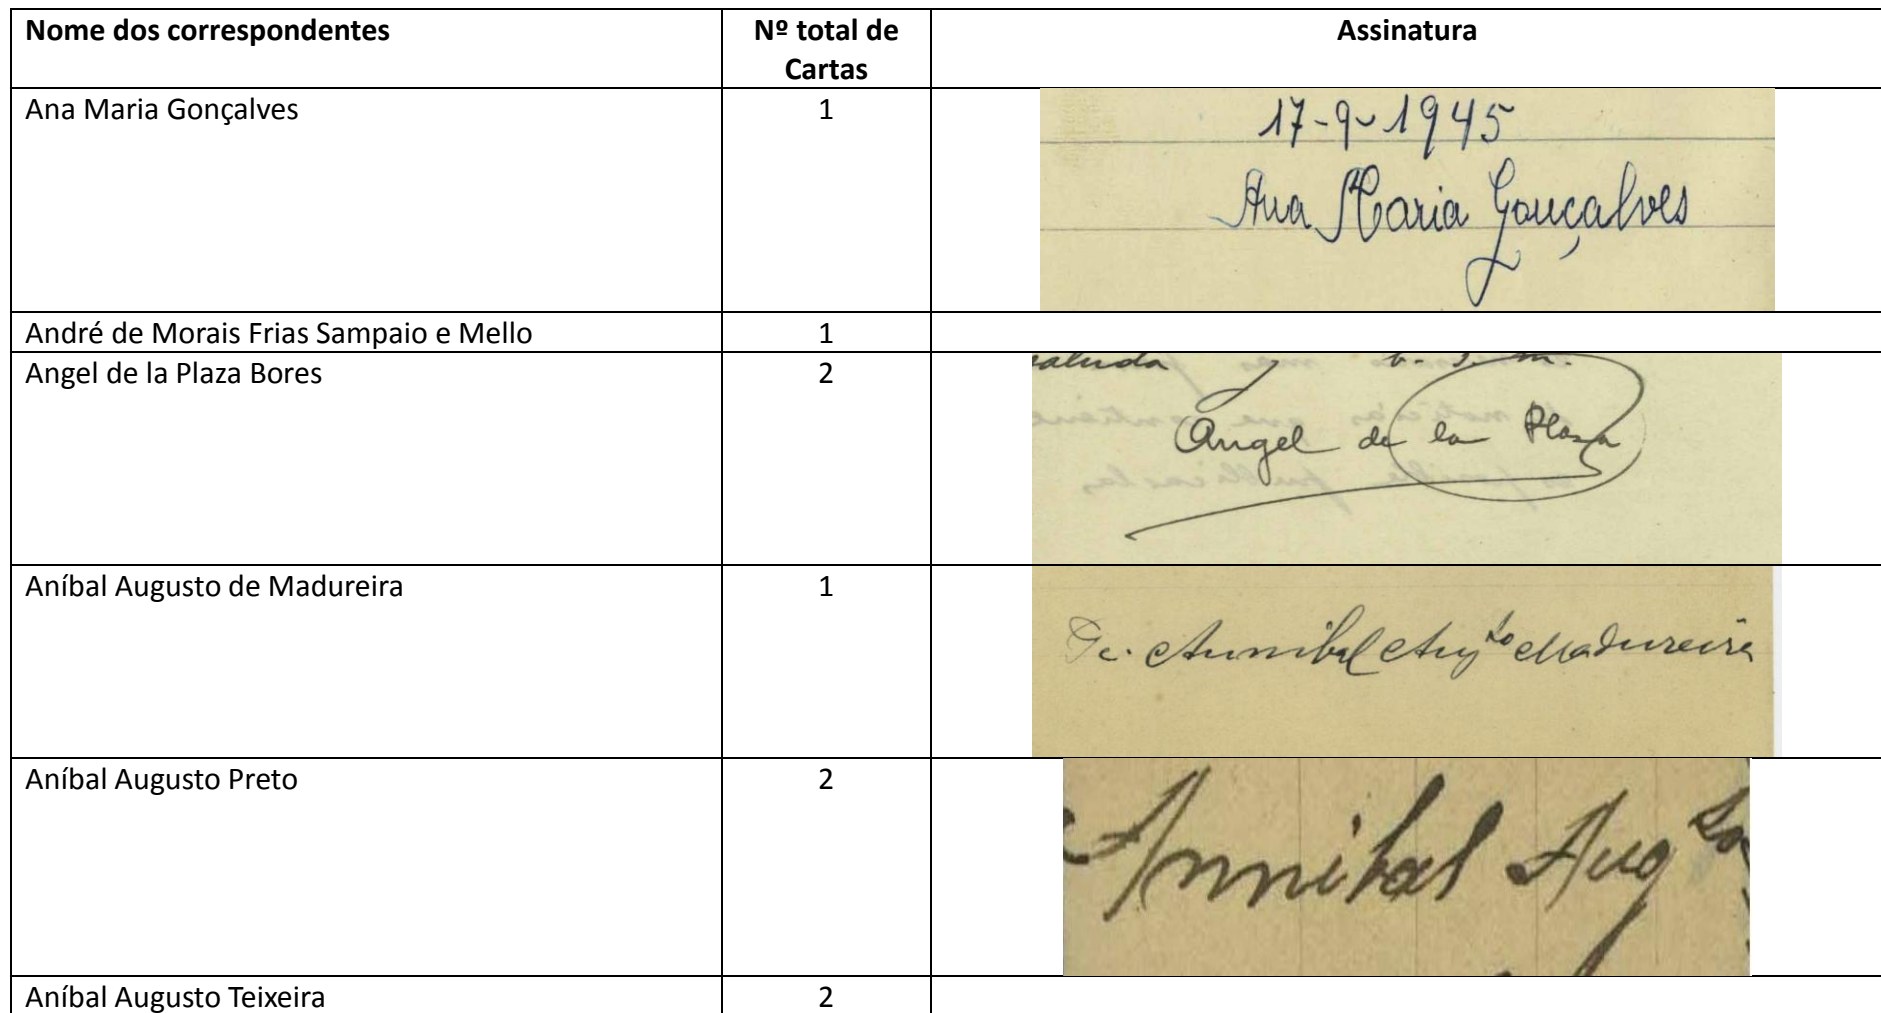 Nome dos correspondentes
Nº total de
Cartas
Assinatura
Ana Maria Gonçalves
1
17-9-1945
Ana Maria Gonçalves
André de Morais Frias Sampaio e Mello
1
Angel de la Plaza Bores
2
saluda y b. s. m.
Angel de la Plaza
Aníbal Augusto de Madureira
1
Annibal Augto Madureira
Aníbal Augusto Preto
2
Annibal Augto
Aníbal Augusto Teixeira
2